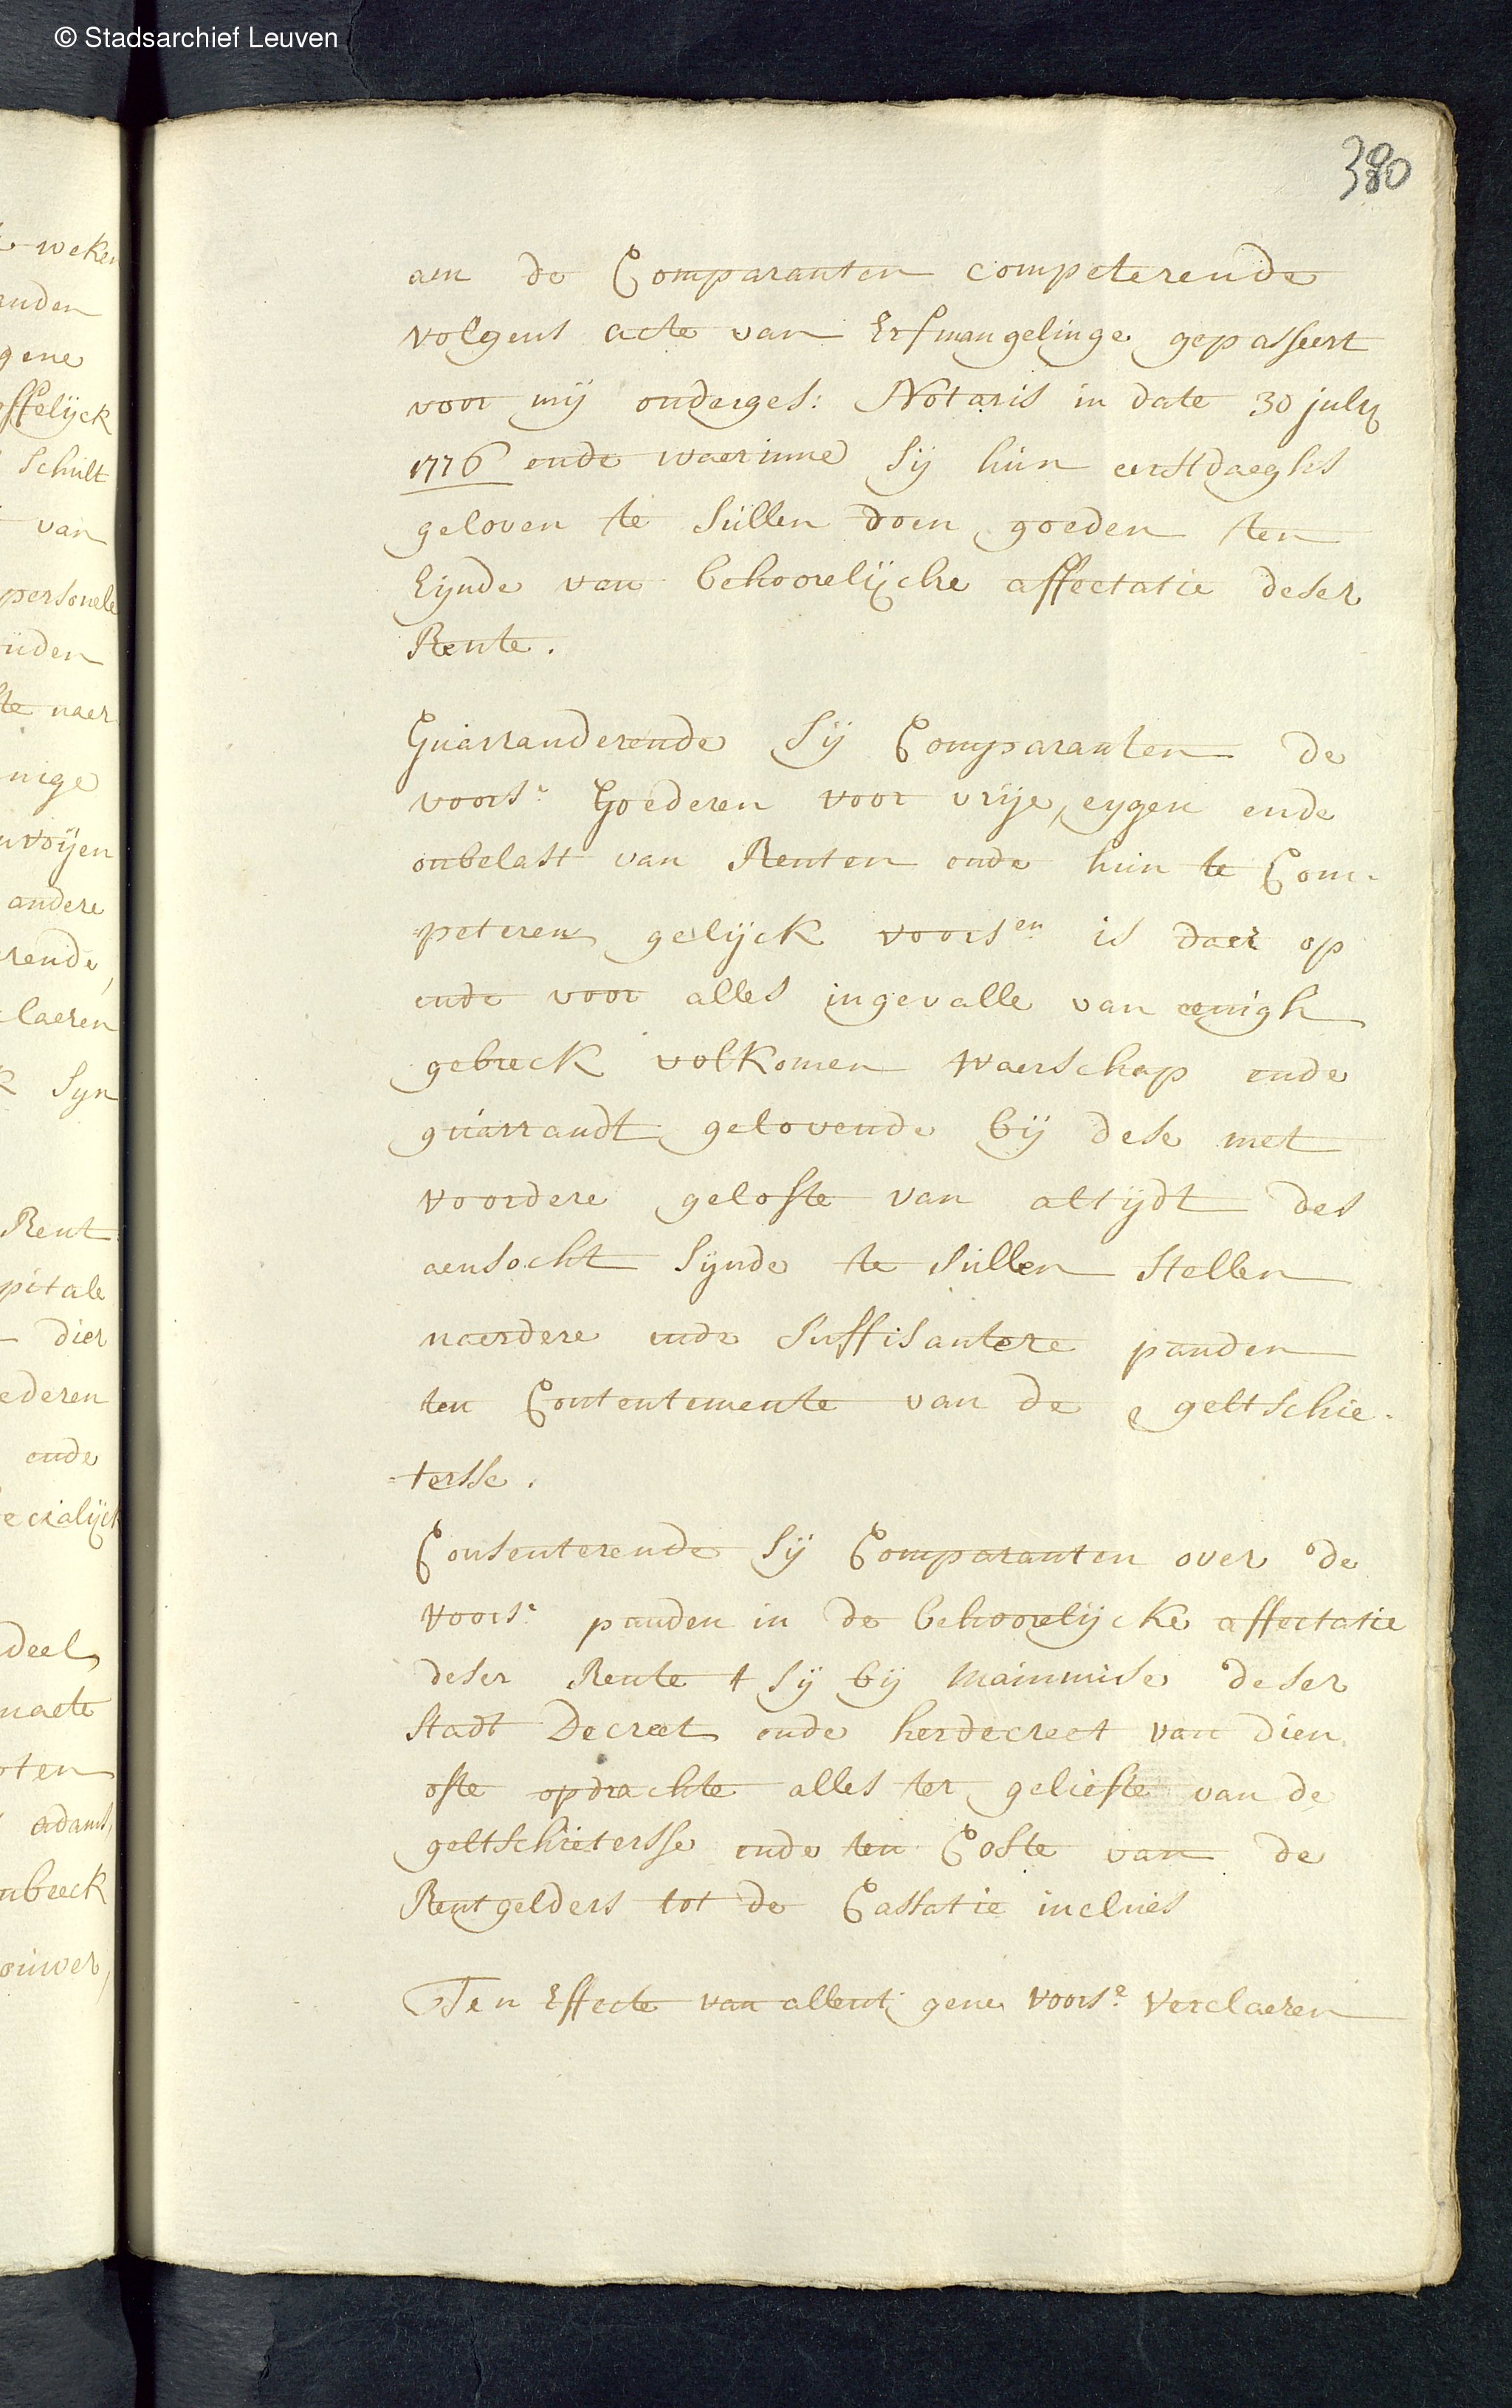 © Stadsarchief Leuven
380
weken
anden
gene
offelijck
schult
van
personele
uden
te naer
nige
voijen
andere
rende,
claeren
syn
Rent
pitale
dier
ederen
ende
ecialijck
deel
maete
oten
adams,
nbeeck
ouwer,
aen de Comparanten competerende
volgens acte van Erfmangelinge gepasseert
voor mij onderges: Notaris in date 30 july
1776 ende waerinne sij hun eerstdaeghs
geloven te sullen doen goeden ten
Eijnde van behoorelijcke affectatie deser
Rente.
Guarranderende sij Comparanten de
voors.e Goederen voor vrije, eygen ende
onbelast van Renten ende hun te Com-
=peteren gelijck voorsen is daer op
ende voor alles ingevalle van eenigh
gebreck volkomen waerschap ende
guarrandt gelovende bij dese met
voordere gelofte van altijdt des
aensocht sijnde te sullen stellen
naerdere ende suffisantere panden
ten Contentemente van de geltschie-
=tersse.
Consenterende sij Comparanten over de
voors.e panden in de behoorelijcke affectatie
deser Rente t sij bij mainmise deser
stadt Decreet ende herdecreet van dien
ofte opdrachte alles ter geliefte van de
geltschietersse ende ten Coste van de
Rentgelders tot de Cassatie incluis
Ten Effecte van allent gene voors.e verclaeren